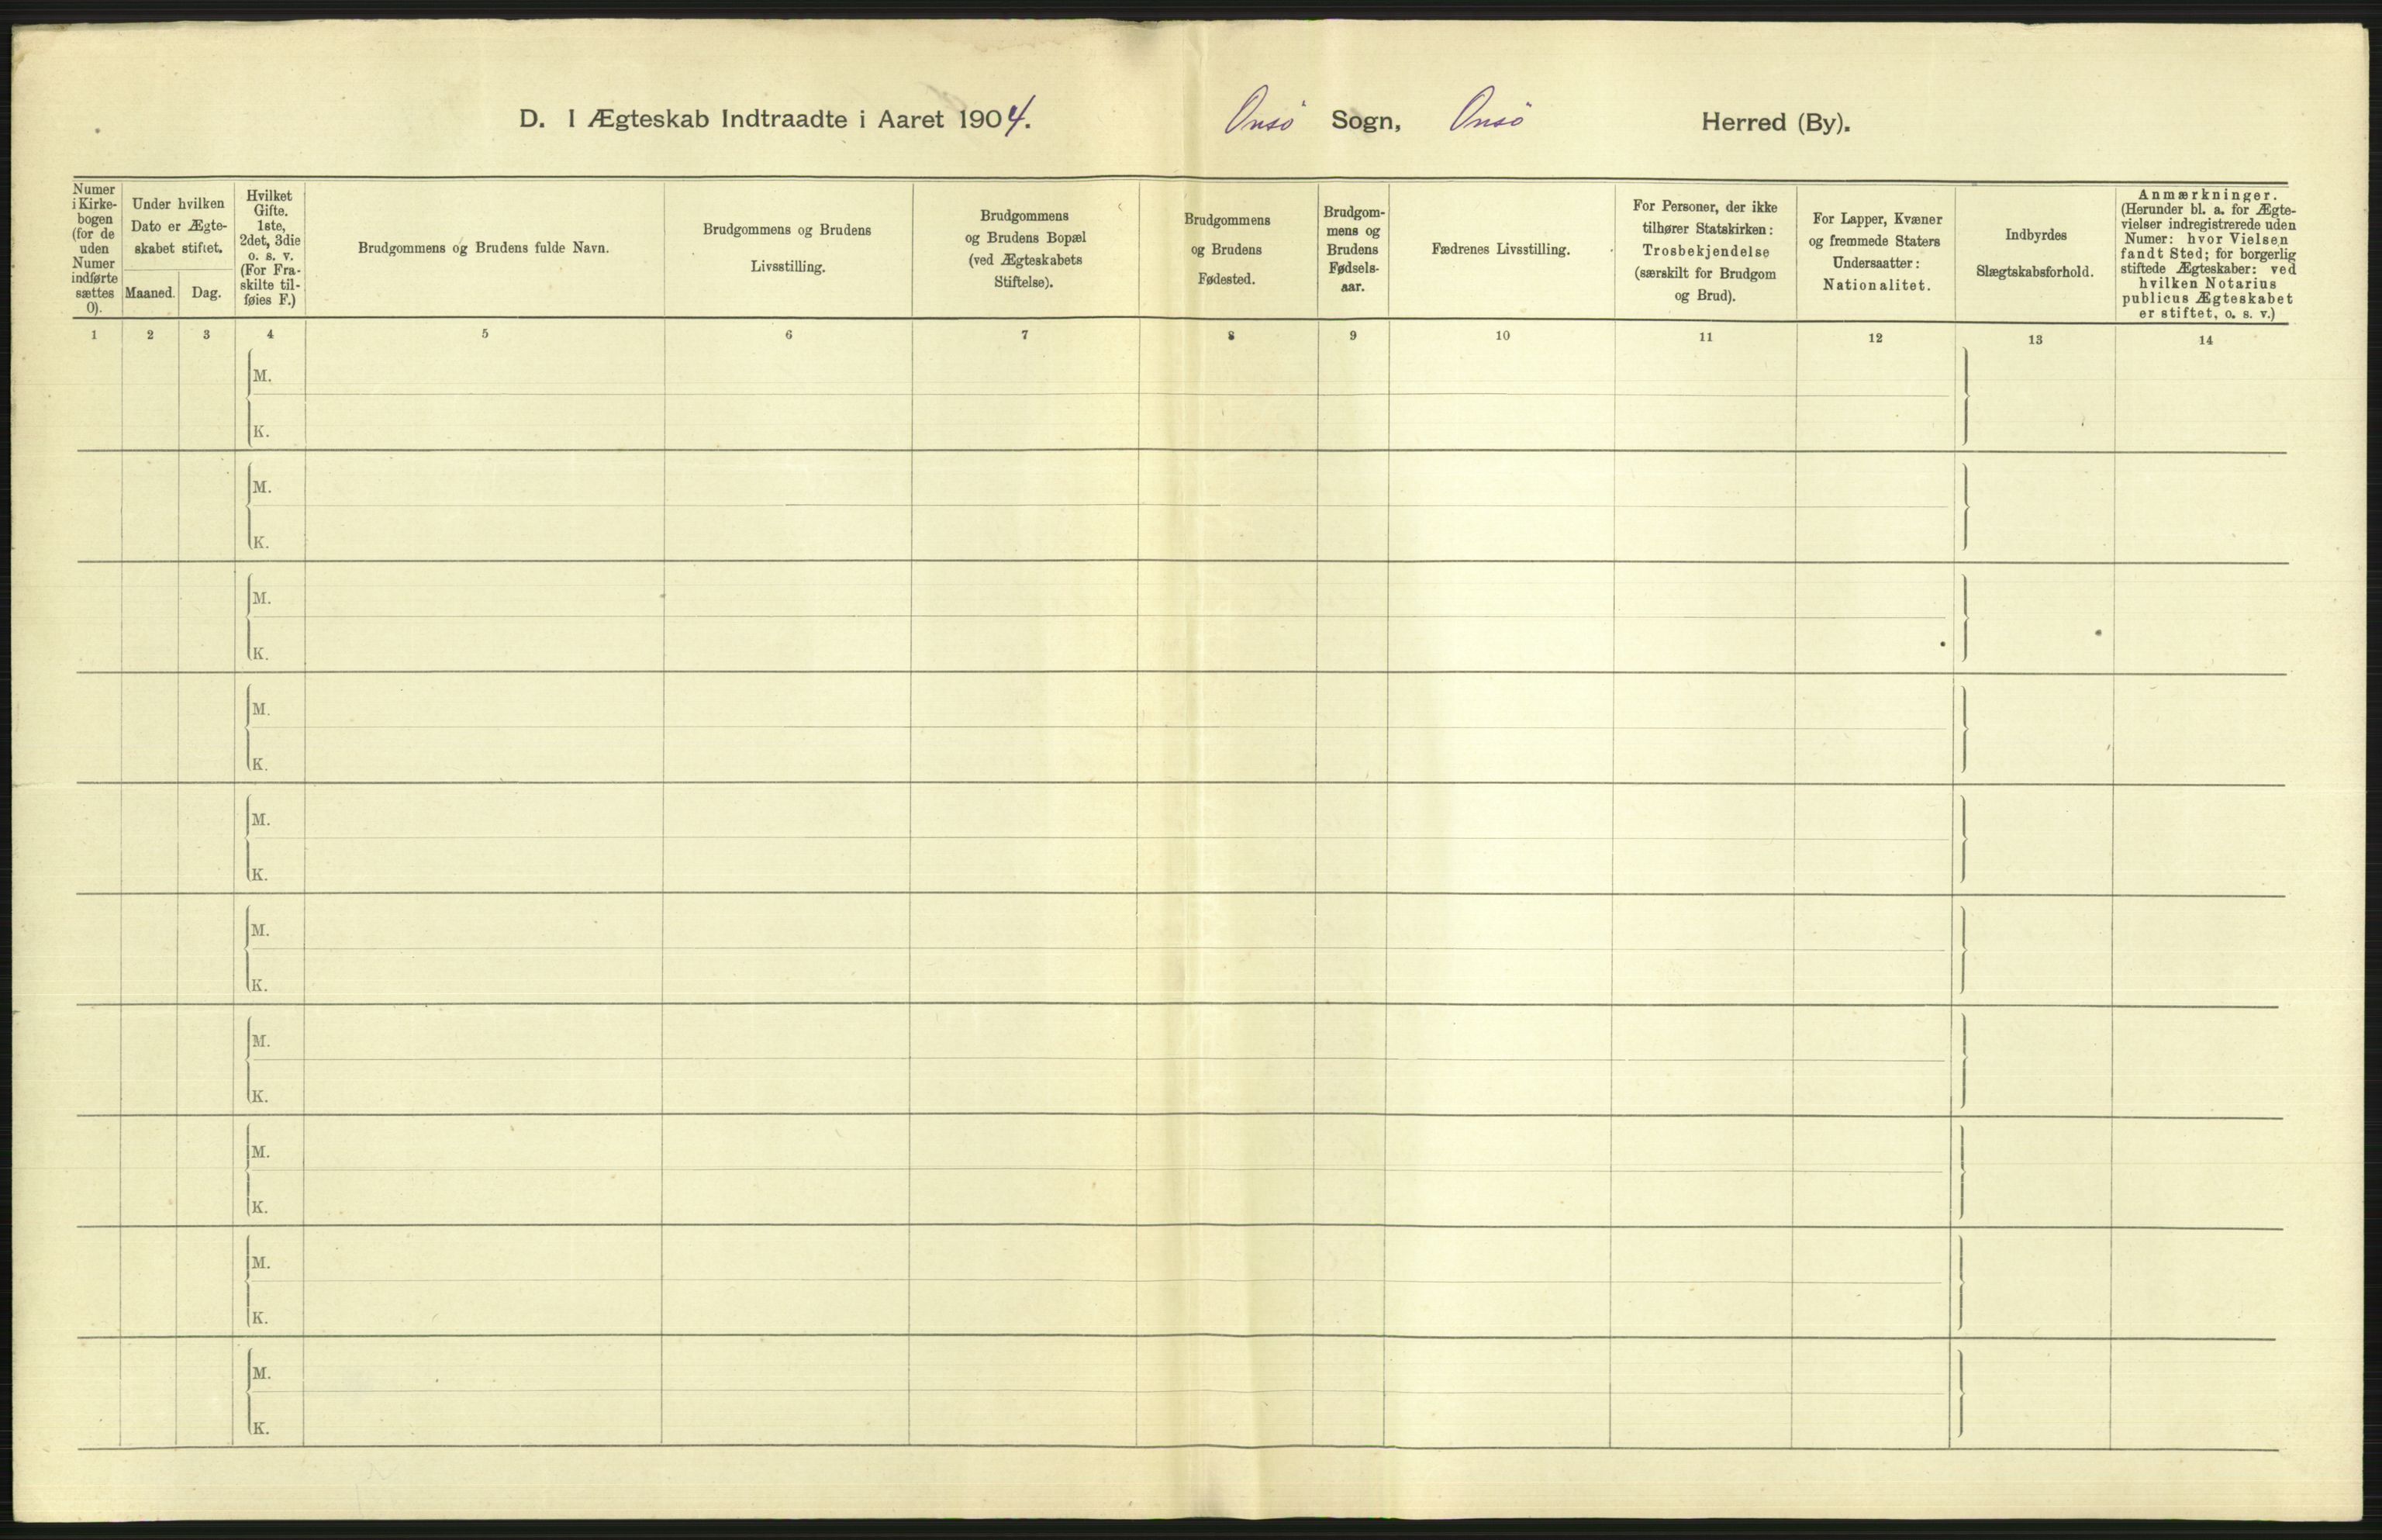 D. I Ægteskab Indtraadte i Aaret 1904. Onsö Sogn, Onsö Herred (By).
Numer
i Kirke-
bogen
(for de
uden
Numer
indførte
sættes
0).
Under hvilken
Dato er Ægte-
skabet stiftet.
Maaned. Dag.
Hvilket
Gifte.
1ste,
2det, 3die
o. s. v.
(For Fra-
skilte til-
føies F.)
Brudgommens og Brudens fulde Navn.
Brudgommens og Brudens
Livsstilling.
Brudgommens
og Brudens Bopæl
(ved Ægteskabets
Stiftelse).
Brudgommens
og Brudens
Fødested.
Brudgom-
mens og
Brudens
Fødsels-
aar.
Fædrenes Livsstilling.
For Personer, der ikke
tilhører Statskirken:
Trosbekjendelse
(særskilt for Brudgom
og Brud).
For Lapper, Kvæner
og fremmede Staters
Undersaatter:
Nationalitet.
Indbyrdes
Slægtskabsforhold.
Anmærkninger.
(Herunder bl. a. for Ægte-
vielser indregistrerede uden
Numer: hvor Vielsen
fandt Sted; for borgerlig
stiftede Ægteskaber: ved
hvilken Notarius
publicus Ægteskabet
er stiftet, o. s. v.)
1 2 3 4 5 6 7 8 9 10 11 12 13 14
M.
K.
M.
K.
M.
K.
M.
K.
M.
K.
M.
K.
M.
K.
M.
K.
M.
K.
M.
K.